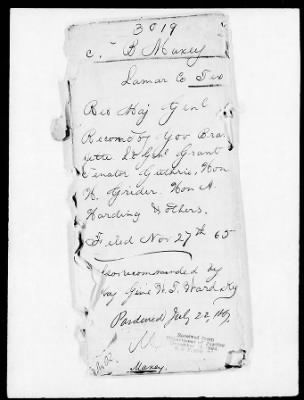 3019
C. B Maxey
Lamar Co Tex
Reb Maj Genl
Recomd by Gov Bram
lette Lt Genl Grant
Senator Guthrie, Hon
H. Grider. Hon A.
Harding & others.
Filed Nov 27th 65
Also recommended by
Maj Genl W. T. Ward Ky
Pardoned July 22, 1867
Received from
Department of Justice
Maxey.